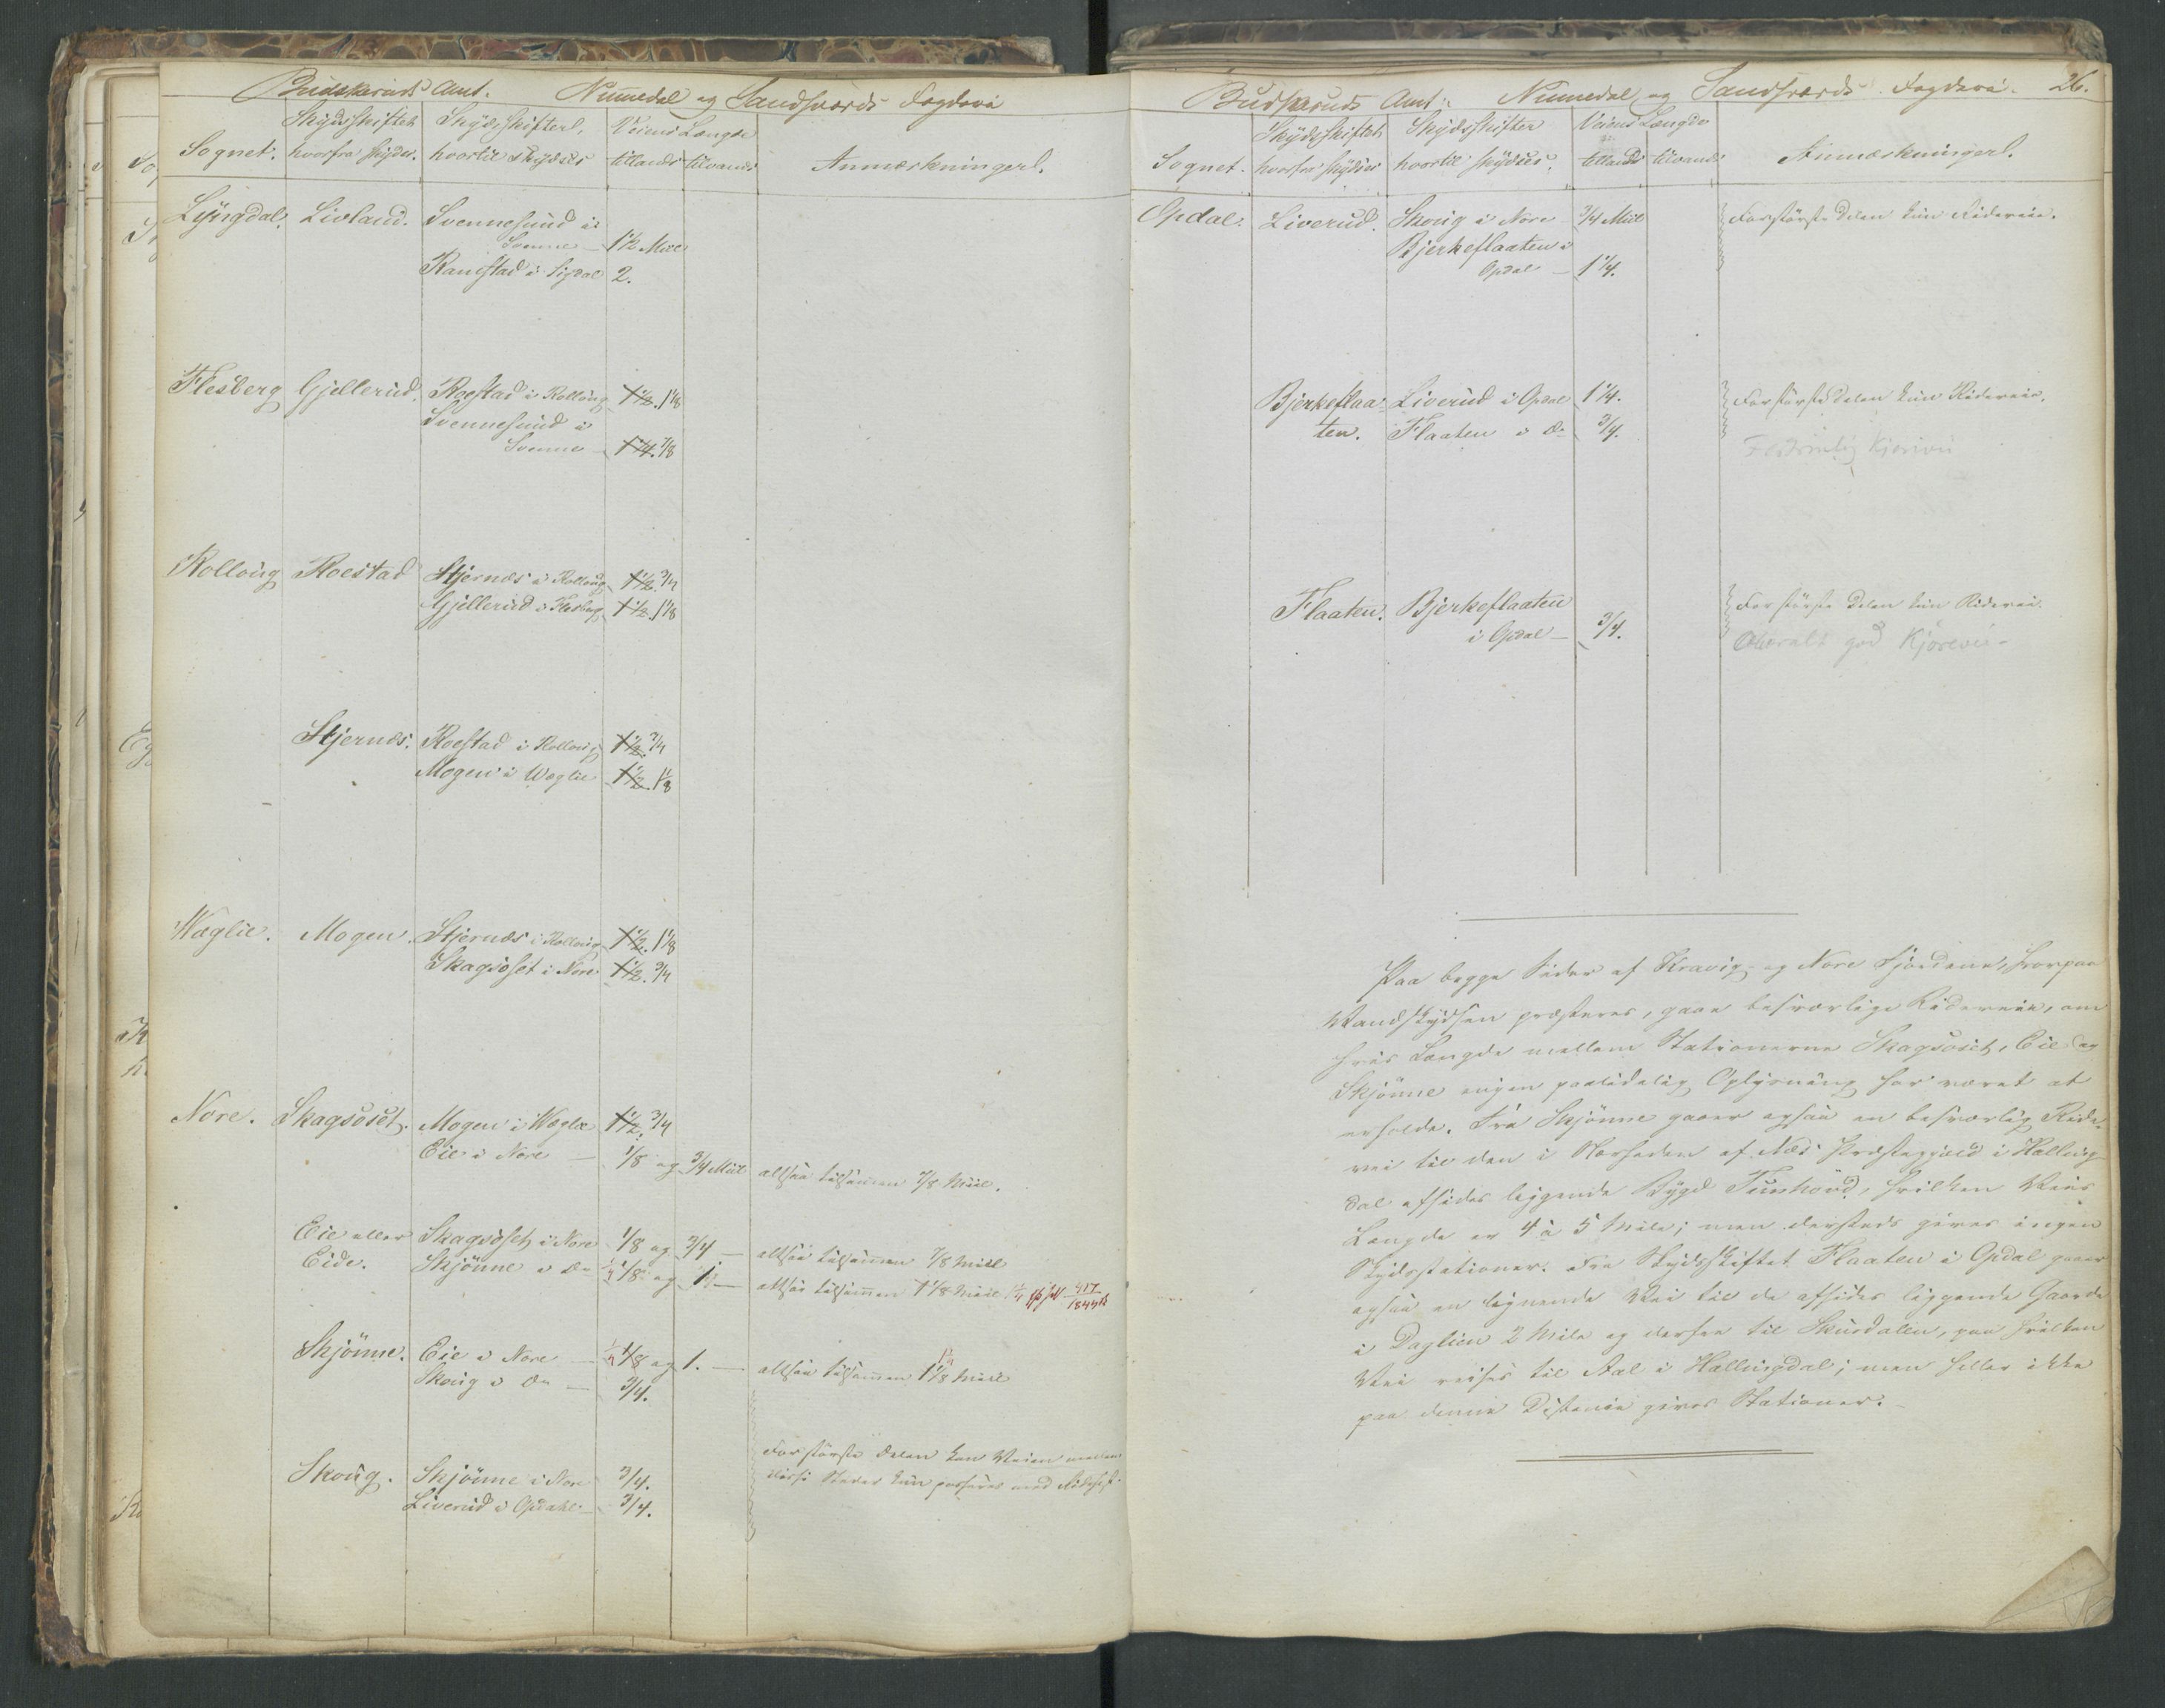 Budskeruds Amt. Nummedal og Sandsværds Fogderie
Sognet. Skydsskiftet hvorfra skydses. Skydsskifter, hvortil skydses Veiens Længde tillands tilvands Anmærkninger.
Lÿngdal. Livland. Svennesund i
Svenne — 1 1/2 Miil
Ramstad i Sigdal 2.
Flesberg Gjellerud. Roestad i Rolloug 1 1/2. 1 1/8
Svennesund i
Svenne — 1 1/4. 7/8
Rolloug Roestad Stjernæs i Rolloug 1 1/2. 3/4
Gjellerud i Flesberg 1 1/2. 1 1/8
Stjernæs. Roestad i Rolloug 1 1/2. 3/4
Mogen i Wæglie 1 1/2. 1 1/8
Wæglie. Mogen. Stjernæs i Rolloug 1 1/2. 1 1/8
Skagsoset i Nore 1 1/2. 3/4
Nore. Skagsoset. Mogen i Wæglie 1 1/2. 3/4
Eie i Nore — 1/8 og 3/4 Miil altsaa tilsammen 7/8 Miil.
Eie eller Skagsoset i Nore 1/8 og 3/4 — altsaa tilsammen 7/8 Miil
Eide. Skjönne i Do 1/4 1/8 og 1. — altsaa tilsammen 1 1/8 Miil 1 1/4 417/1844
Skjönne. Eie i Nore — 1/4 1/8 og 1. — altsaa tilsammen 1 1/8 Miil 1 1/4
Skoug i Do — 3/4.
Skoug. Skjönne i Nore 3/4. For störste Delen kan Veien mellem
Liverud i Opdahl 3/4. disse Steder kun passeres med Ridehest.
Budskeruds Amt. Nummedal og Sandsværds Fogderie. 26.
Sognet. Skydsskiftet hvorfra skydses Skydsskifter hvortil skydses. Veiens Længde tillands tilvands Anmærkninger.
Opdal. Liverud. Skoug i Nore 3/4 Miil For störste Delen kun Rideveie.
Bjerkeflaaten i
Opdal — 1 1/4.
Bjerkeflaa- Liverud i Opdal 1 1/4. For störste Delen kun Rideveie.
ten. Flaaten i Do 3/4.
Kjörevei
Flaaten. Bjerkeflaaten For störste Delen kun Ridevei.
i Opdal — 3/4. Overalt god Kjörevei.
Paa begge Sider af Kravig og Nore Fjordene, hvorpaa
Vandskydsen præsteres, gaae besværlige Rideveie, om
hvis Længde mellem Stationerne Skagsoset, Eie og
Skjönne ingen paalidelig Oplysning har været at
erholde. Fra Skjönne gaaer ogsaa en besværlig Ride-
vei til den i Nærheden af Næs Præstegjæld i Halling-
dal afsides liggende Bygd Tunhovd, hvilken Veis
Længde er 4 à 5 Mile; men dersteds gives ingen
Skydsstationer. Fra Skydsskiftet Flaaten i Opdal gaaer
ogsaa en lignende Vei til de afsides liggende Gaarde
i Daglien 2 Mile og derfra til Skurdalen, paa hvilken
Vei reises til Aal i Hallingdal; men heller ikke
paa denne Distance gives Stationer.